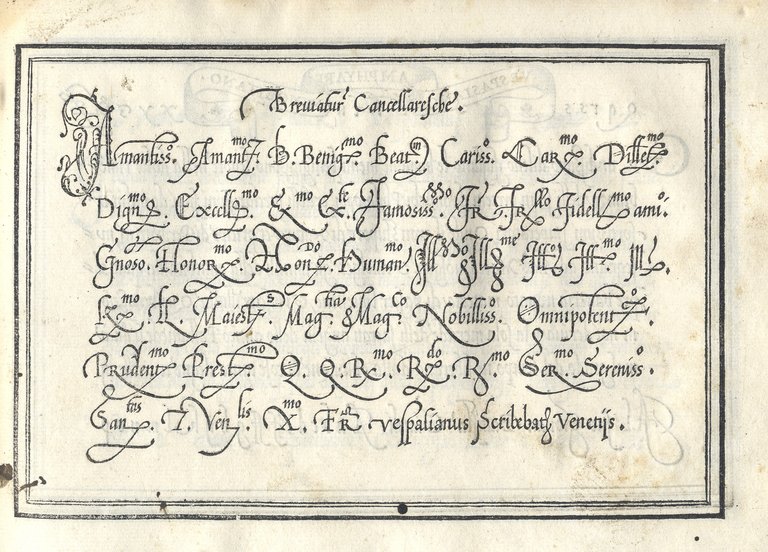 Breviatur̃ Cancellaresche.
Amantissᵒ. Amantᵐᵒ. B. Benigᵐᵒ Beatᵐ Carissᵒ. Carᵐᵒ. Diletᵐᵒ.
Dignᵐᵒ. Excellᵐᵒ. Famosissᵐᵒ. Fr. Frᵉˡˡᵒ Fidellᵐᵒ amiᵒ.
Gnoso. Honorᵐᵒ. Honᵈᵒ. Humanᵐᵒ. Illᵐᵒ Illᵐᵉ Illᵒ. Illᵐᵒ. Ill.
Maiestˢ. Magᶜᵒ. Nobillissᵒ. Omnipotentᵒ.
Prudentᵐᵒ Prestᵐᵒ Q. Q. Rᵐᵒ. Rᵈᵒ. R.ᵐᵒ Serᵐᵒ Serenissᵒ
Sanᵗᵃˢ. T. Venˡⁱˢ. X.ᵐᵒ Fr̃ Vespasianus Scribebat Venetijs.